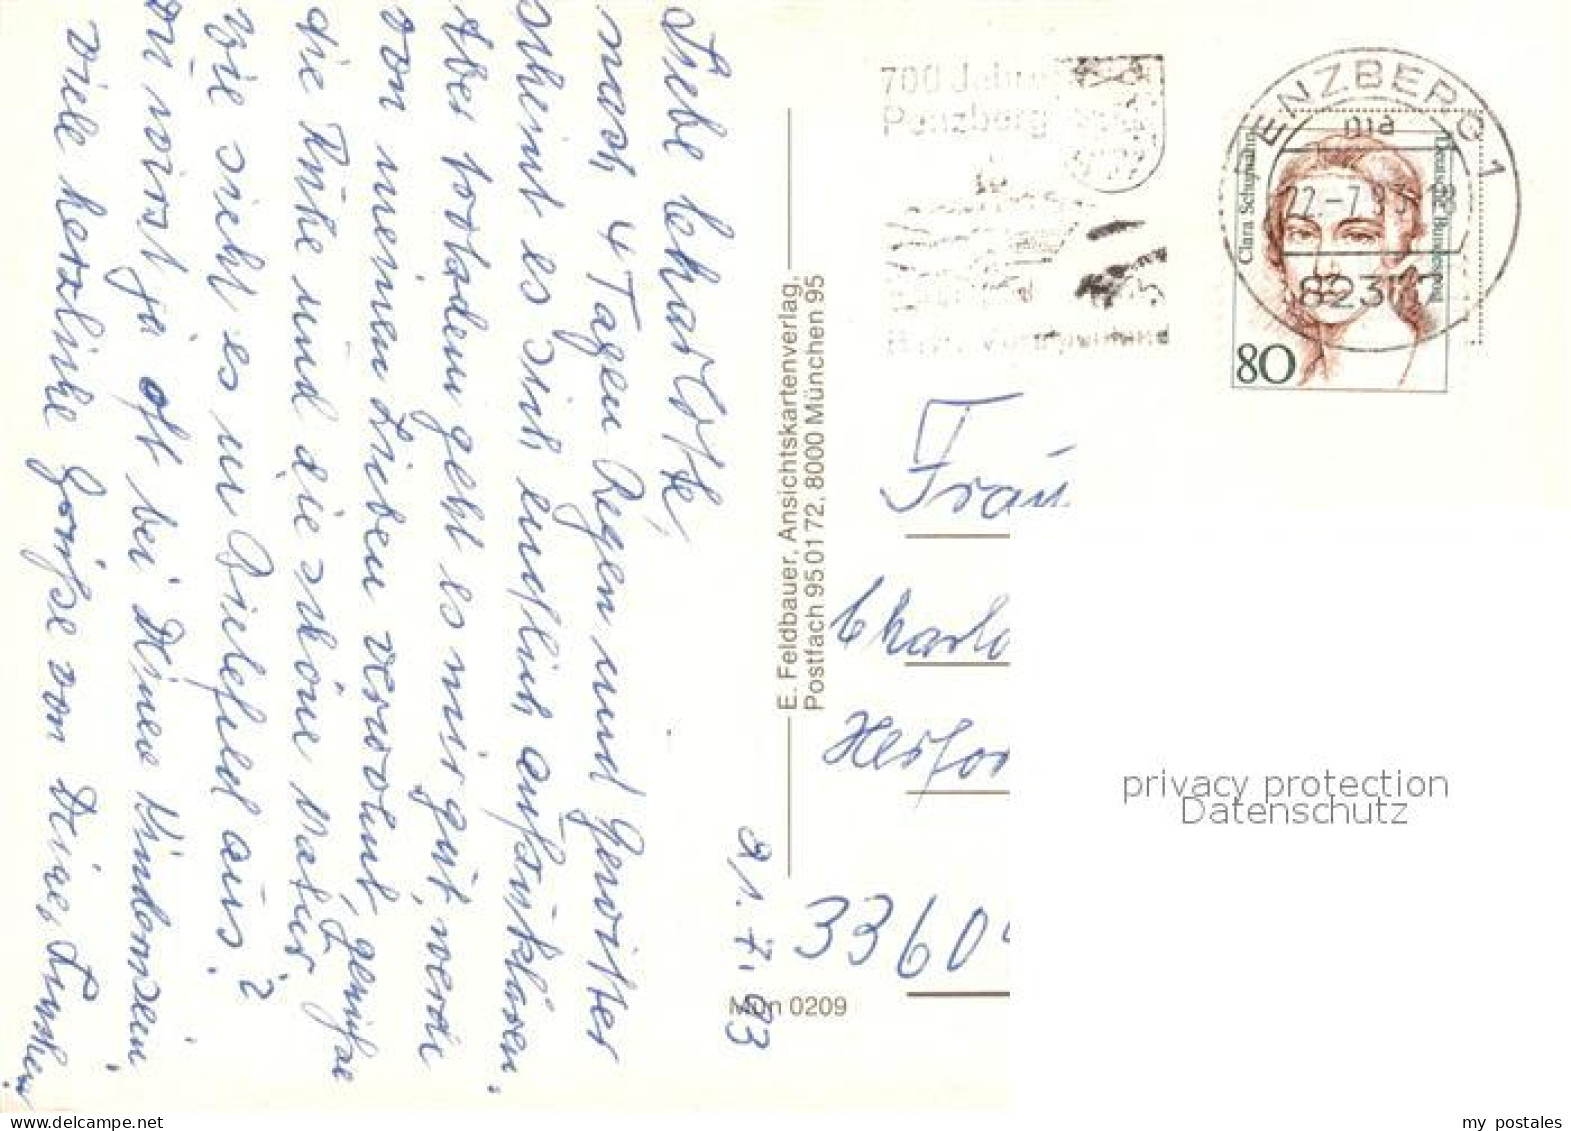 21.7.93
Liebe Scharlotte,
nach 4 Tagen Regen und Gewitter
scheint es sich endlich aufzuklären.
Aber trotzdem geht es mir gut, werde
von meinen Lieben verwöhnt, genieße
die Ruhe und die schöne Natur.
Wie sieht es in Bielefeld aus?
Du wirst ja oft bei Deinen Kindern sein.
viele herzliche Grüße von Deiner
E. Feldbauer, Ansichtskartenverlag,
Postfach 950172, 8000 München 95
Mün 0209
700 Jahre
Penzberg
ENZBERG 1
mа
22.-7.93-18
Clara Schumann
Deutsche Bundespost
80
Frau
Charlo
Herfor
3360
privacy protection
Datenschutz
my_postales